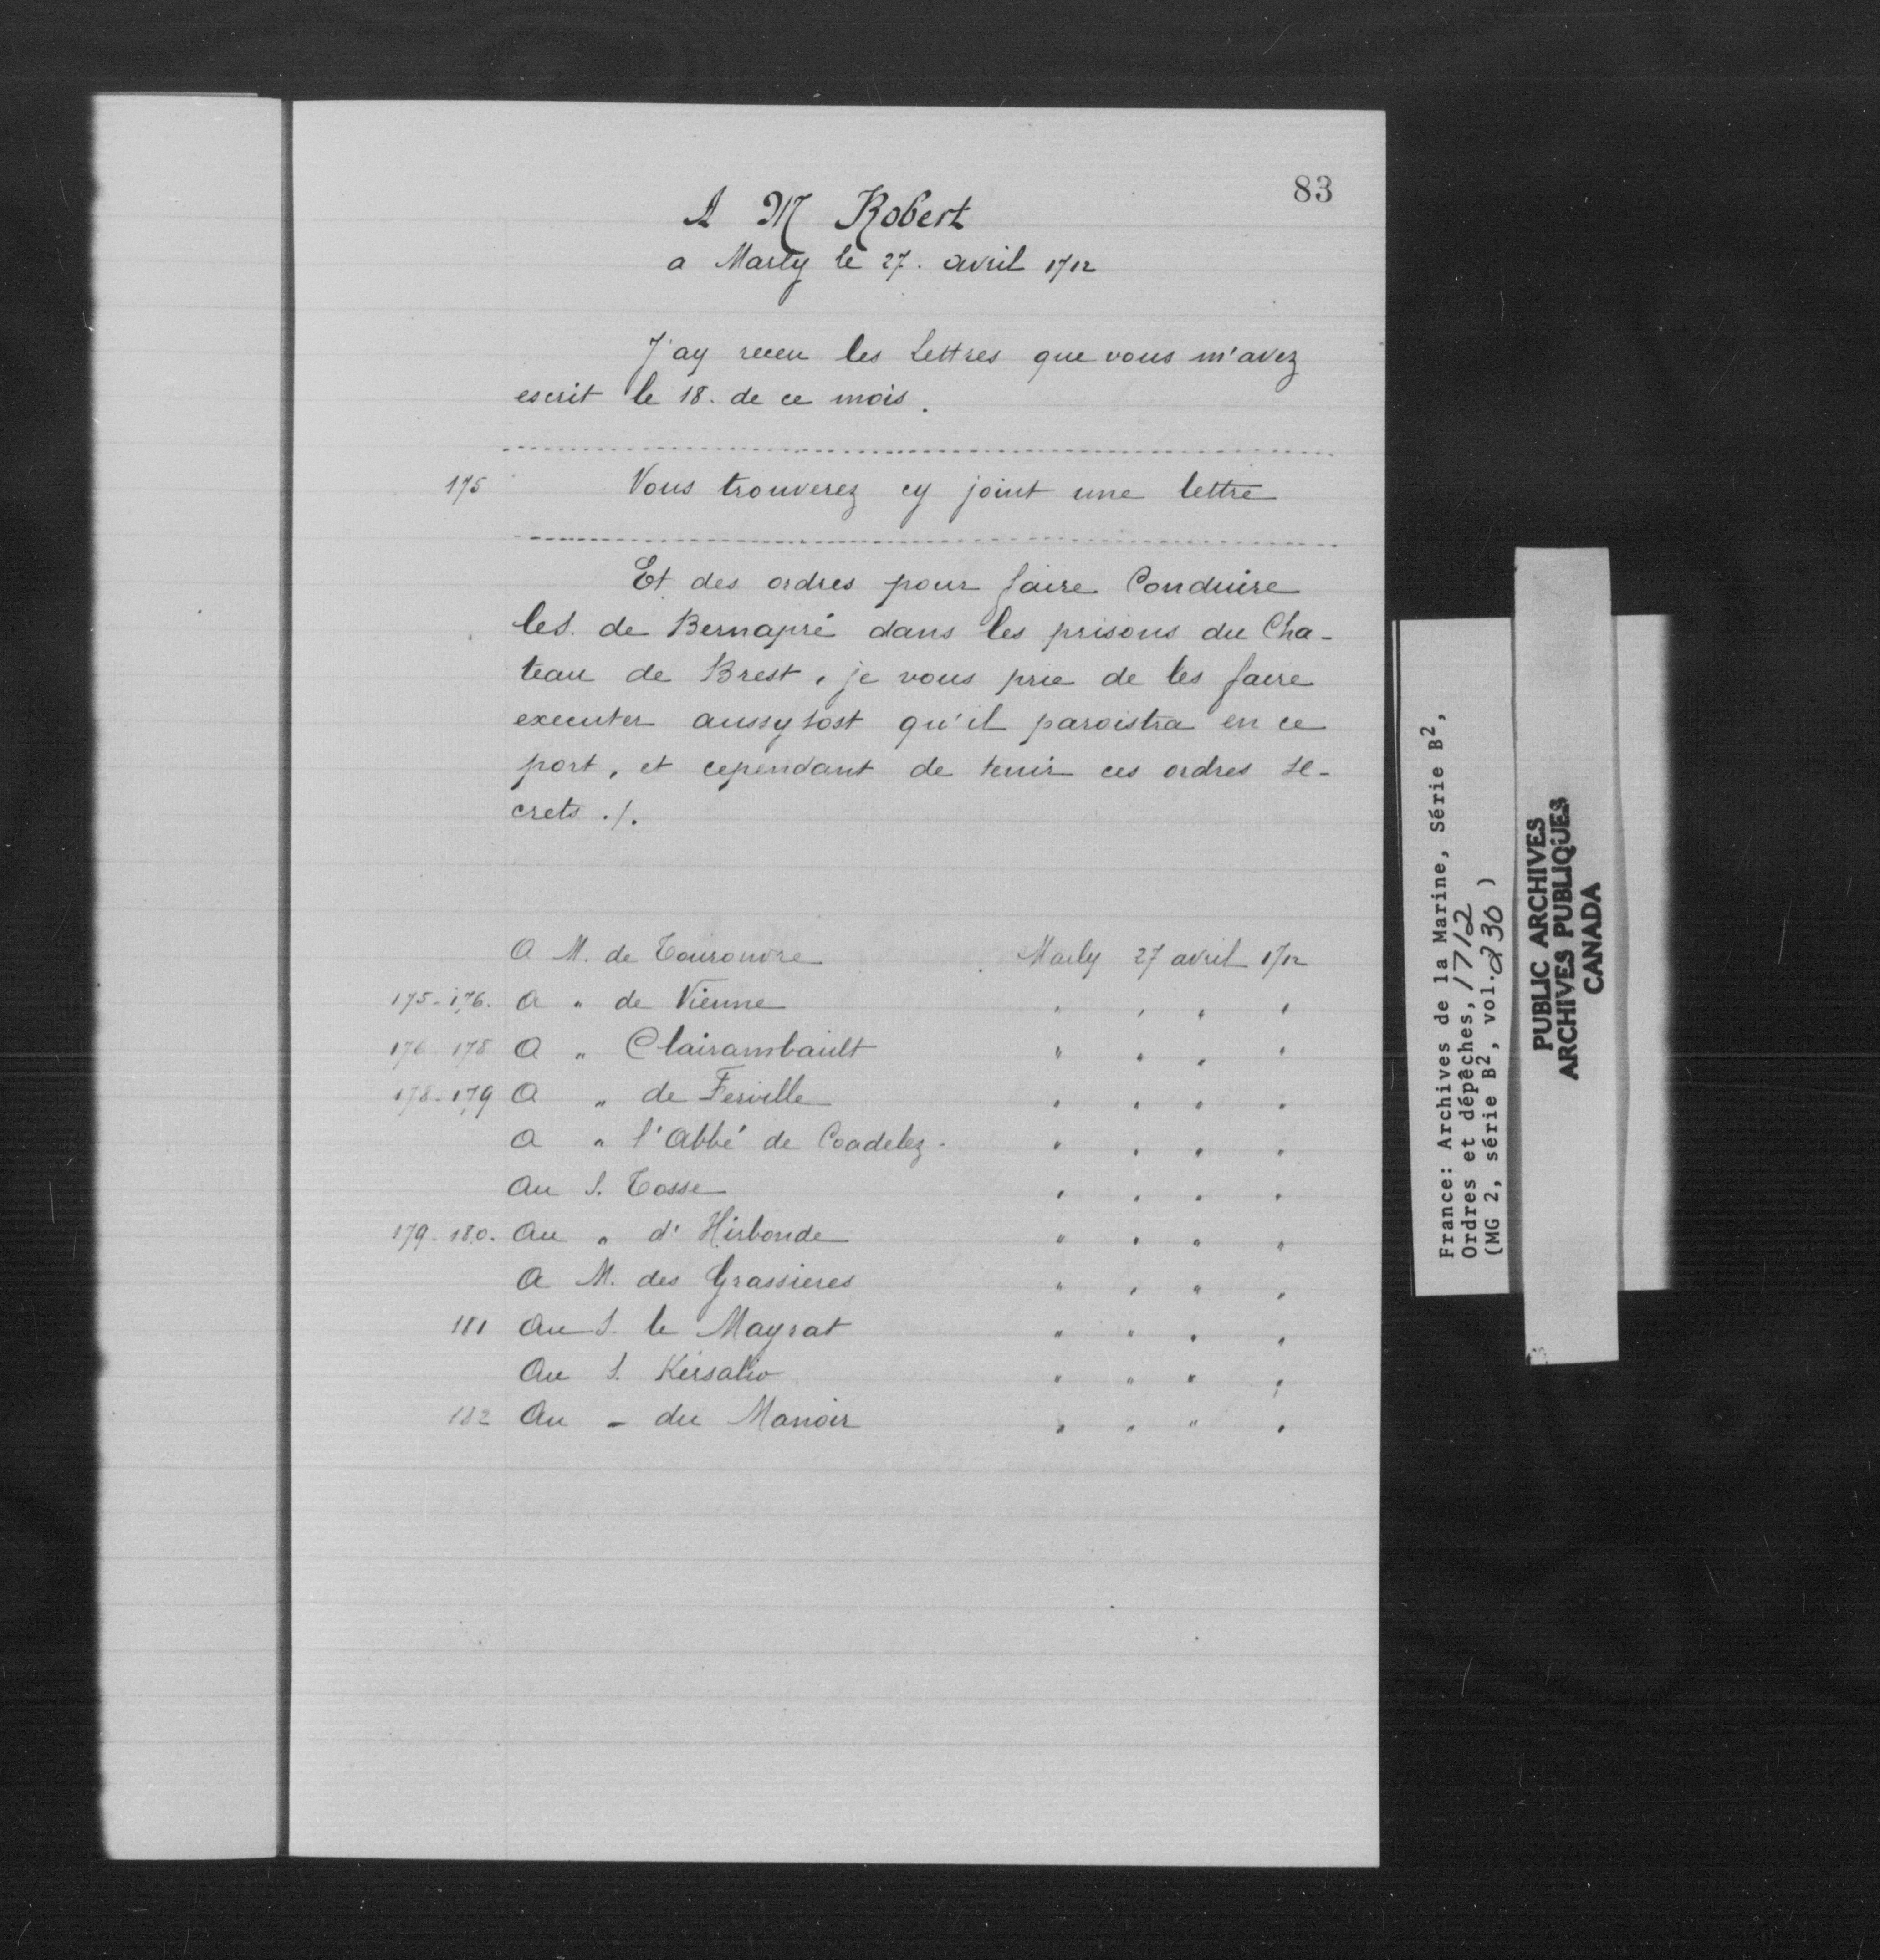 83
A M Robert
a Marly le 27. avril 1712
J'ay receu les Lettres que vous m'avez
escrit le 18. de ce mois.
175 Vous trouverez cy joint une lettre
Et des ordres pour faire Conduire
le S. de Bernapré dans les prisons du Cha-
teau de Brest, je vous prie de les faire
executer aussy tost qu'il paroistra en ce
port, et cependant de tenir ces ordres se-
crets ./.
A M. de Tourouvre Marly 27 avril 1712
175-176. A " de Vienne " " " "
176-178 A " Clairambault " " " "
178-179 A " de Ferville " " " "
A " l'Abbé de Coadelez - " " " "
Au S. Cosse " " " "
179-180. Au " d'Hirbonde " " " "
A M. des Grassieres " " " "
181 Au S. le Mayrat " " " "
Au S. Kersalio " " " "
182 Au - du Manoir " " " "
France: Archives de la Marine, Série B2,
Ordres et dépêches, 1712
(MG 2, série B2, vol. 230)
PUBLIC ARCHIVES
ARCHIVES PUBLIQUES
CANADA